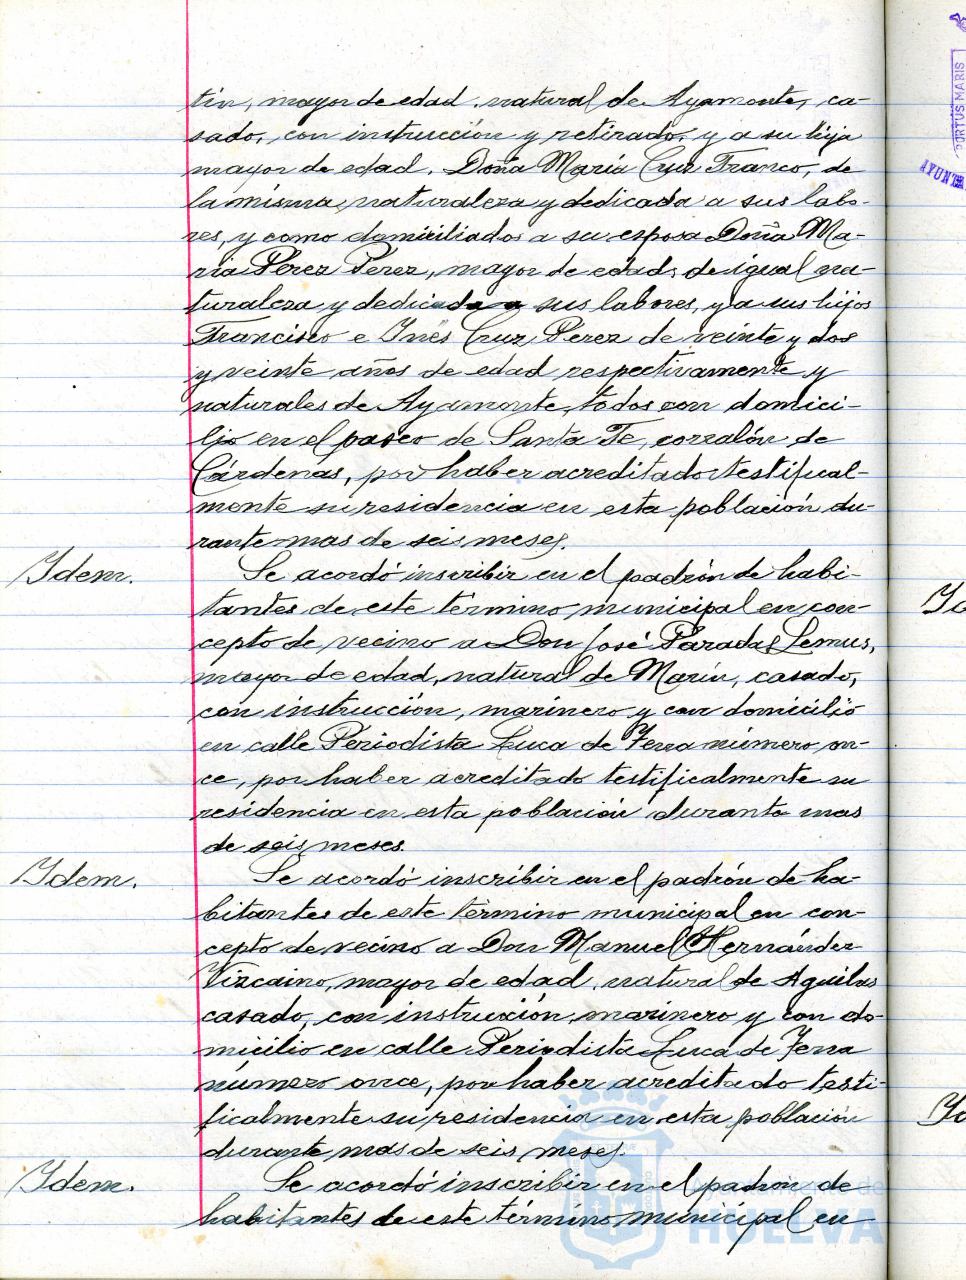 tin, mayor de edad, natural de Ayamonte, ca-
sado, con instrucción y retirado, y a su hija
mayor de edad, Doña María Cruz Franco, de
la misma naturaleza y dedicada a sus labo-
res, y como domiciliados a su esposa Doña Ma-
ria Pérez Perez, mayor de edad, de igual na-
turaleza y dedicada a sus labores, y a sus hijos
Francisco e Inés Cruz Pérez de veinte y dos
y veinte años de edad respectivamente y
naturales de Ayamonte, todos con domici-
lio en el paseo de Santa Fe, corralón de
Cárdenas, por haber acreditado testifical-
mente su residencia en esta población du-
rante mas de seis meses.
Idem.
Se acordó inscribir en el padrón de habi-
tantes de este término municipal en con-
cepto de vecino a Don José Paradas Lemus,
mayor de edad, natural de Marín, casado,
con instrucción, marinero y con domicilio
en calle Periodista Luca de Tena número on-
ce, por haber acreditado testificalmente su
residencia en esta población durante mas
de seis meses.
Idem.
Se acordó inscribir en el padrón de ha-
bitantes de este término municipal en con-
cepto de vecino a Don Manuel Hernández
Vizcaino, mayor de edad, natural de Aguilas
casado, con instrucción, marinero y con do-
micilio en calle Periodista Luca de Tena
número once, por haber acreditado testi-
ficalmente su residencia en esta población
durante mas de seis meses.
Idem.
Se acordó inscribir en el padrón de
habitantes de este término municipal en
PORTUS MARIS
HUELVA